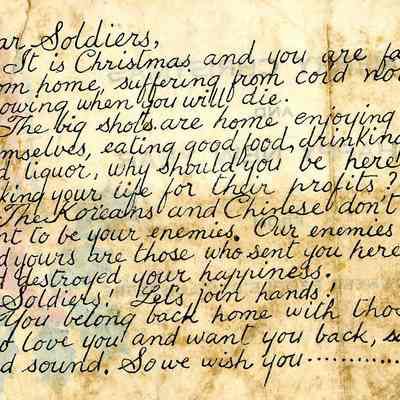 ar Soldiers,
It is Christmas and you are fa
om home, suffering from cold not
owing when you will die.
The big shots are home enjoying
mselves, eating good food, drinking
d liquor, why should you be here
king your life for their profits?
The Koreans and Chinese don't
nt to be your enemies. Our enemies
d yours are those who sent you here
d destroyed your happiness.
Soldiers! Let's join hands!
You belong back home with thos
o love you and want you back, sa
d sound. So we wish you..............